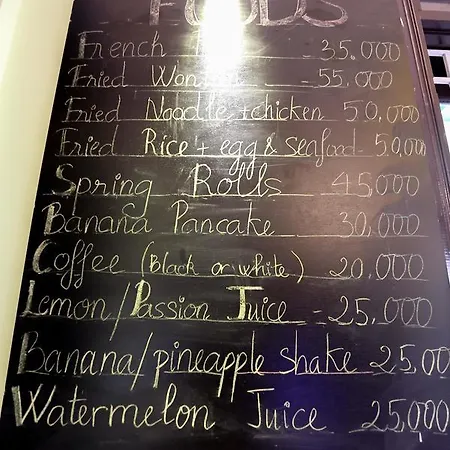 FOODS
French - 35.000
Fried - 55.000
Fried Noodle + chicken 50,000
Fried Rice + egg & seafood - 50,000
Spring Rolls 45000
Banana Pancake 30,000
Coffee (Black or white) 20,000
Lemon/Passion Juice - 25,000
Banana/pineapple shake 25,00
Watermelon Juice 25,000